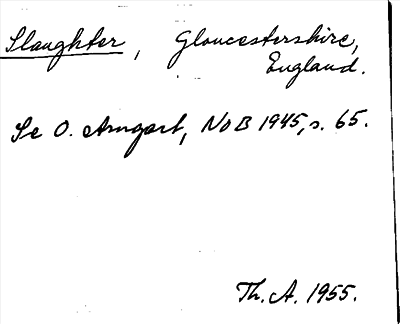 Slaughter, Gloucestershire,
England.
Se O. Arngart, NoB 1945, s. 65.
Th. A. 1955.